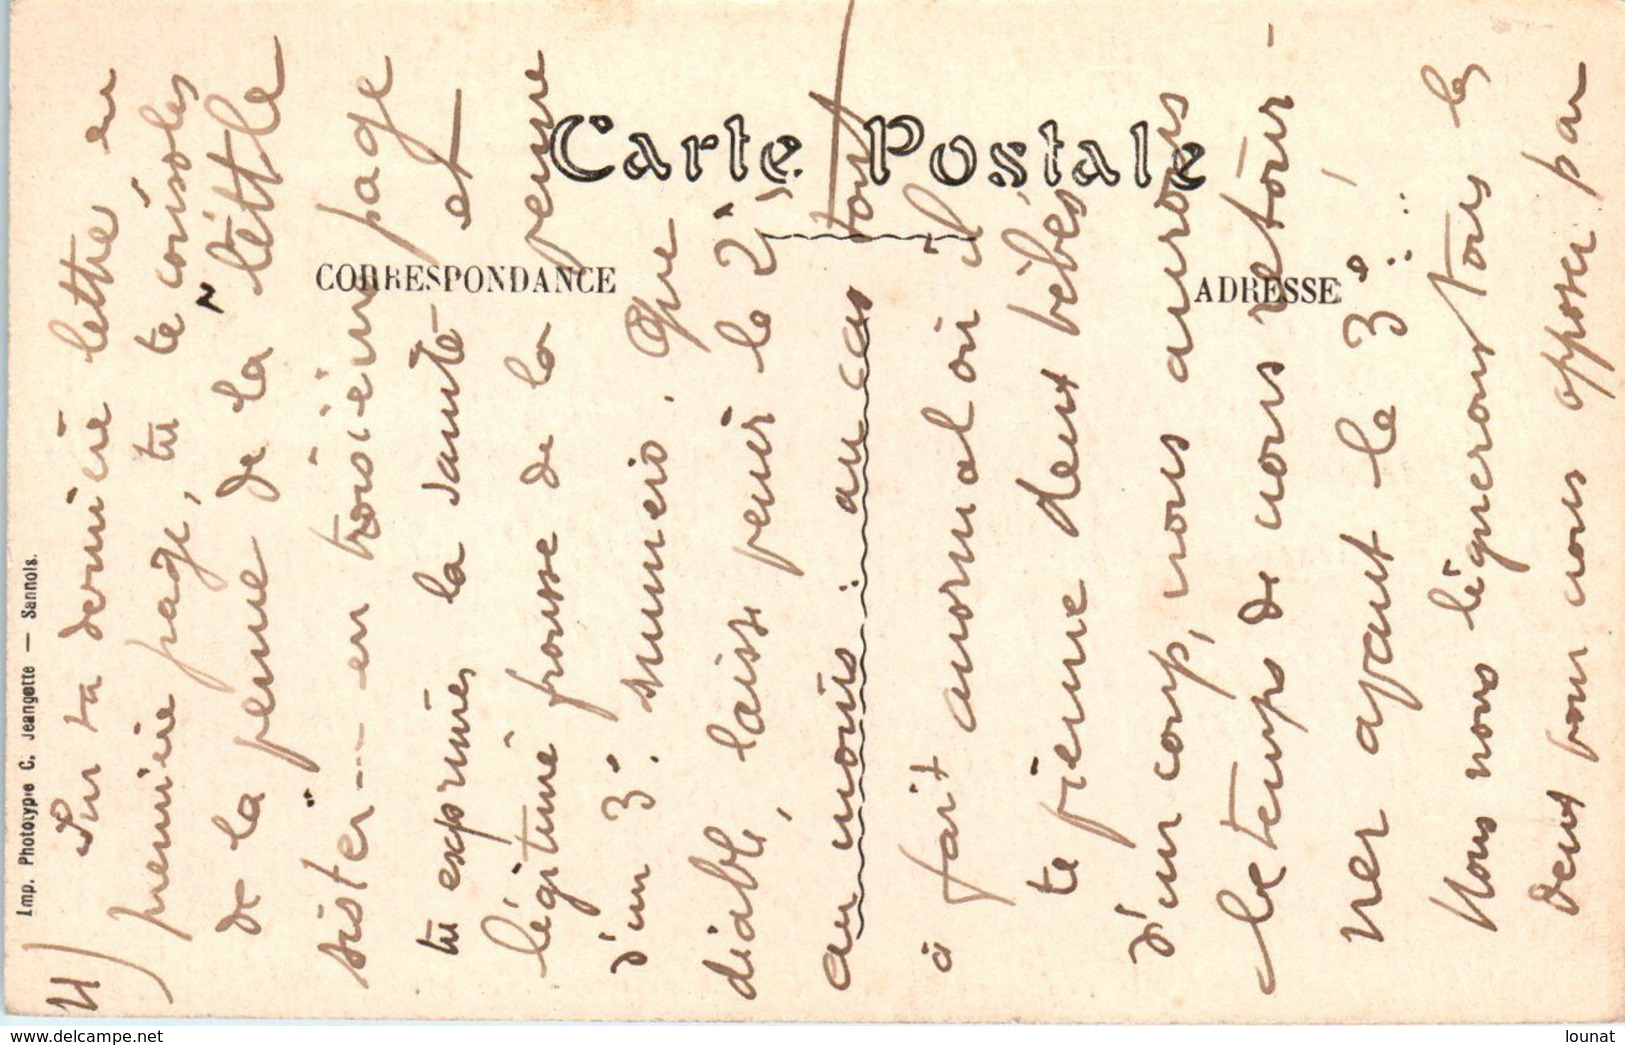 Carte Postale
CORRESPONDANCE
ADRESSE
Imp. Phototypie C. Jeangette — Sannois.
4)
Sur ta dernière lettre en
première page, tu te consoles
de la peine de la "little
sister" -- en troisième page
tu exprimes la santé et
légitime frousse de la venue
d'un 3°. numéro. Que
diable, laisse venir le 2°,
au moins: au cas tout
à fait anormal où il
te vienne deux bébés
d'un coup, nous aurons
le temps de nous retour-
ner avant le 3° ...
Nous nous liguerons tous les
deux pour nous opposer par
www.delcampe.net
lounat